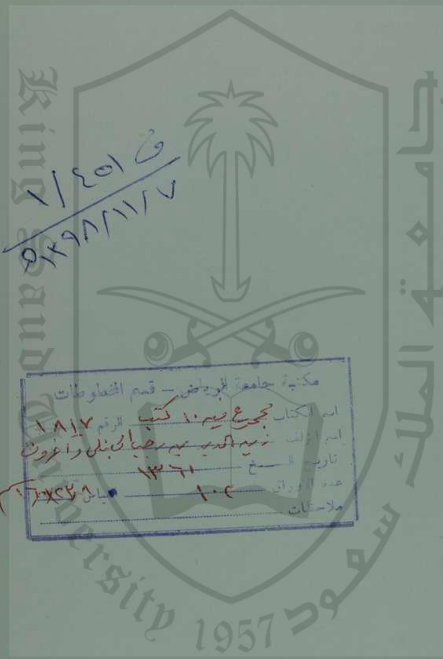 ف ١/٤٥١
١٣٩٨/١١/٧ هـ
مكتبة جامعة الرياض - قسم المخطوطات
اسم الكتاب مجموع فيه ١٠ كتب الرقم ١٨١٧
اسم المؤلف زين الدين بن رجب الحنبلي وآخرون
تاريخ النسخ ١٣٦١
عدد الأوراق ١٠٢
ملاحظات
جامعة الملك سعود
King Saud University
1957